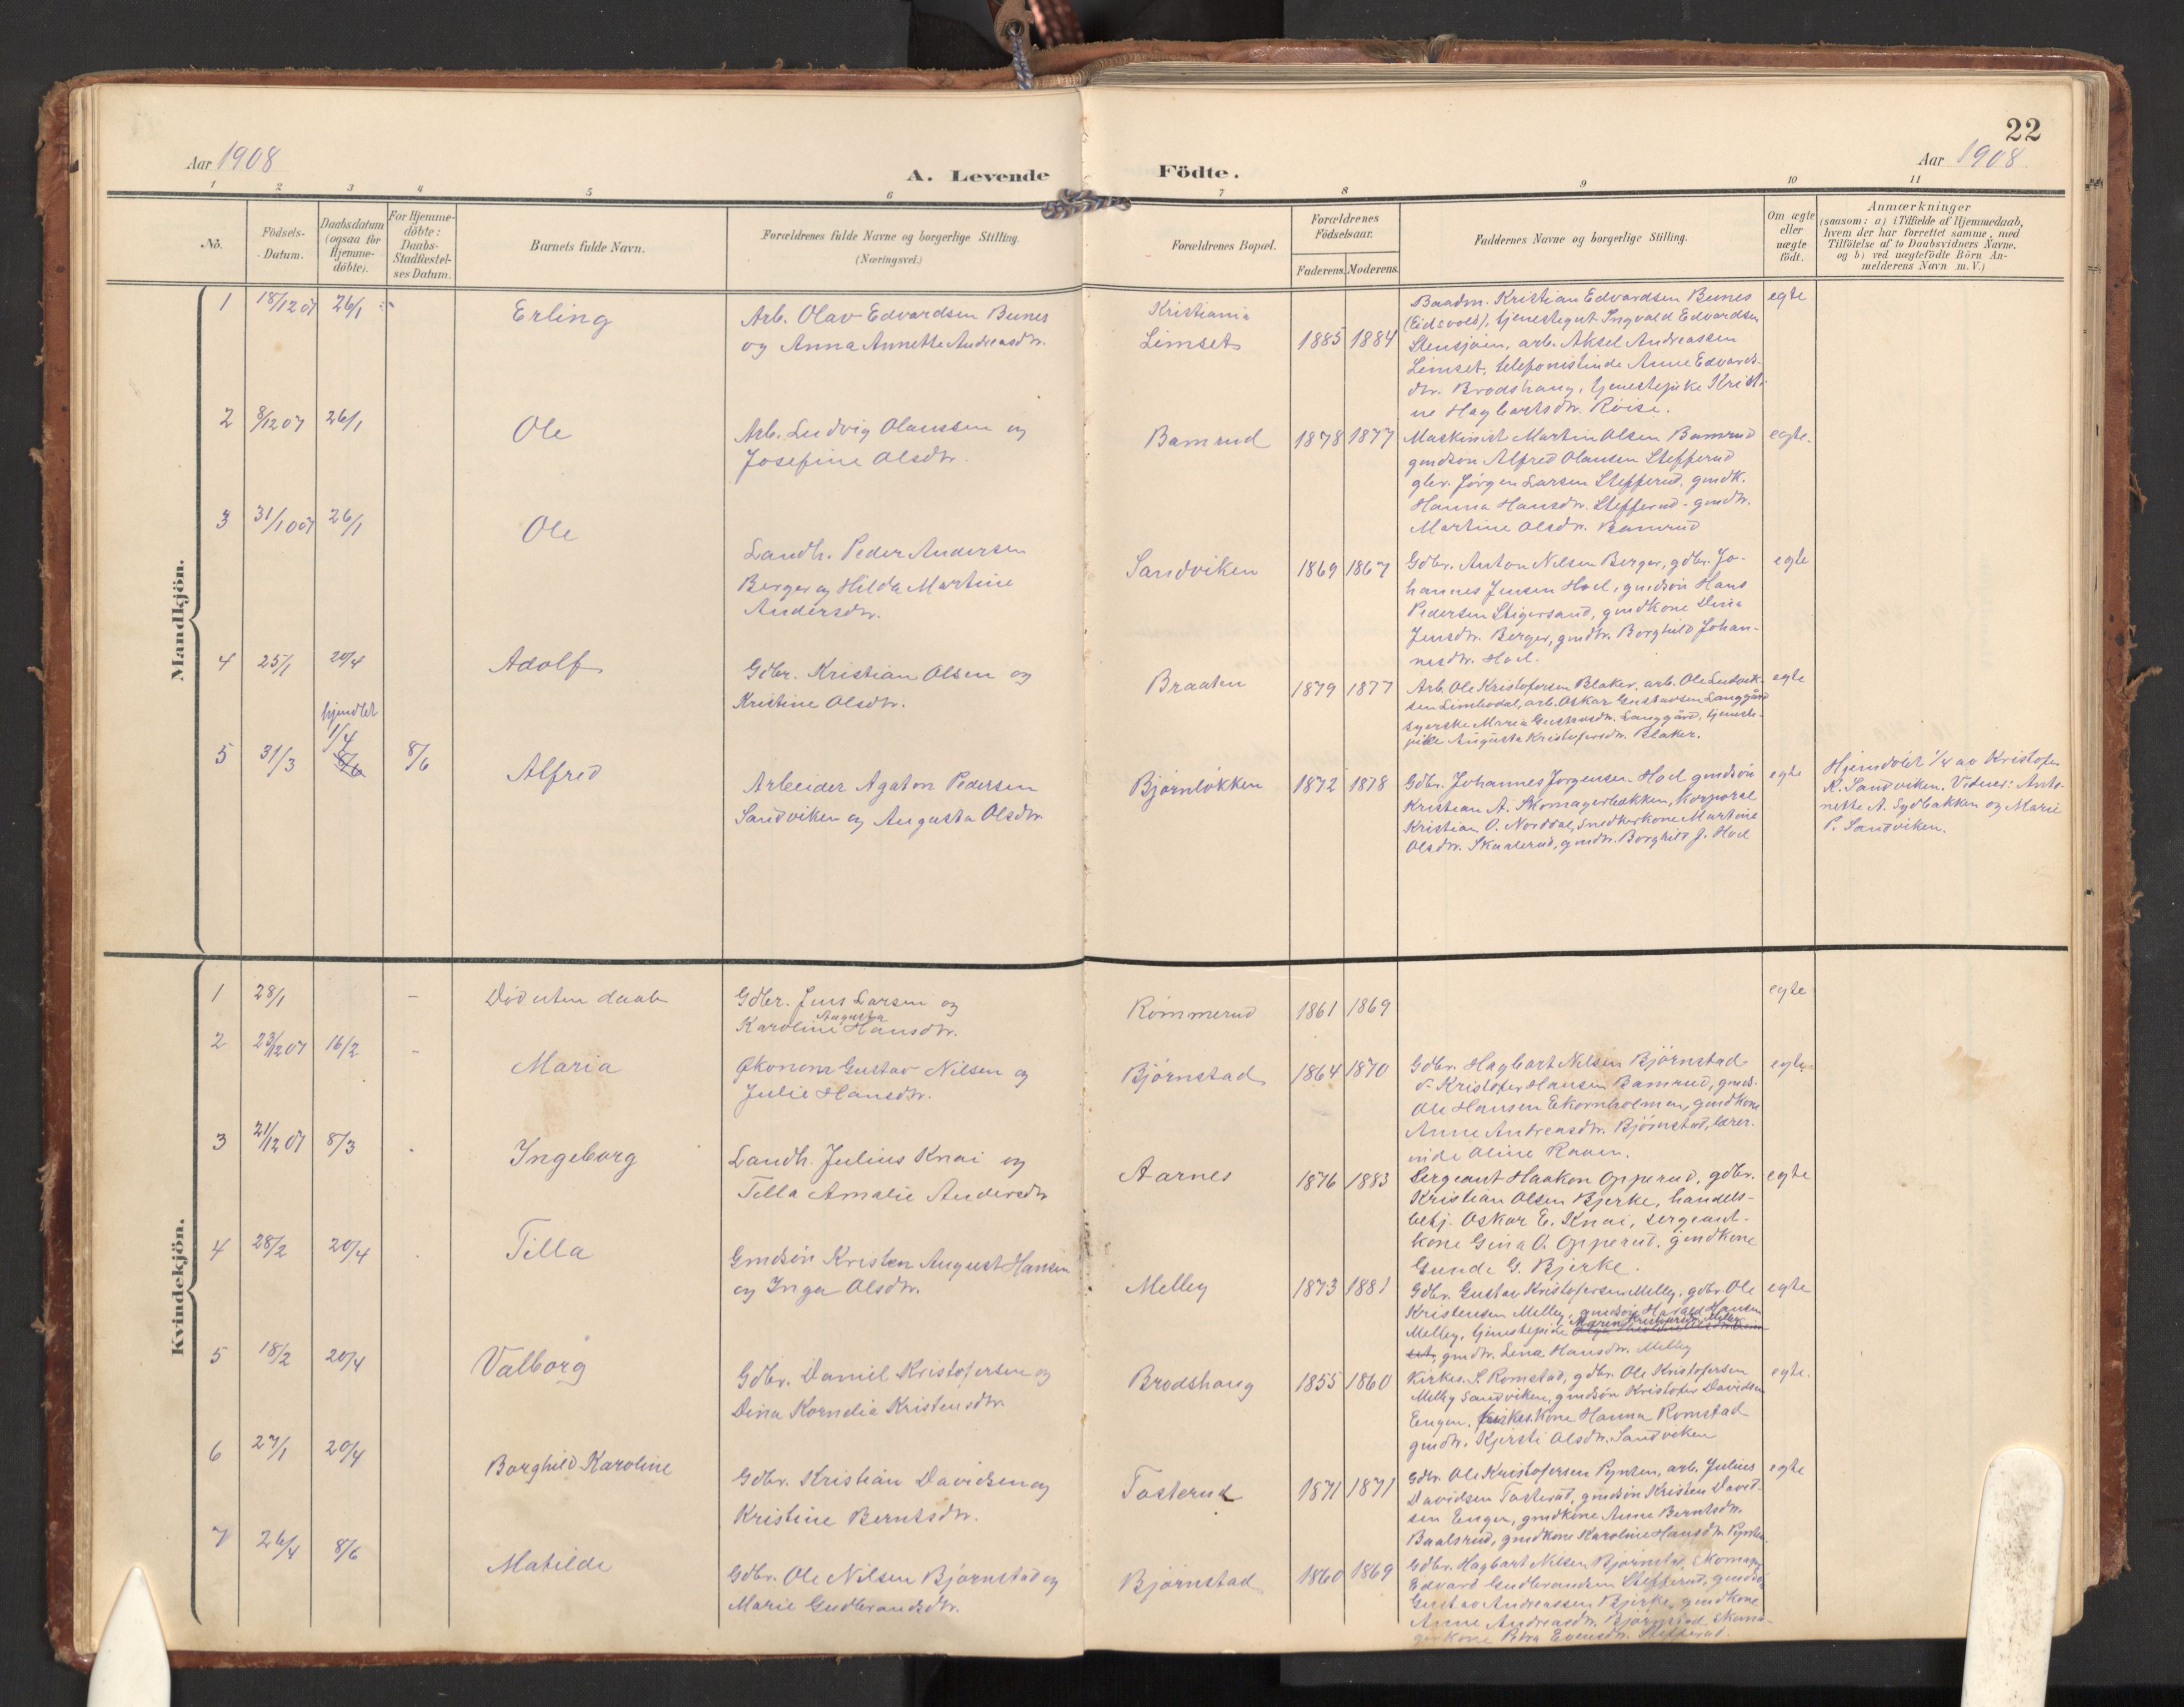 22
Aar 1908
A. Levende Födte.
Aar 1908
1 2 3 4 5 6 7 8 9 10 11
Nö.
Födsels-Datum.
Daabsdatum (ogsaa for Hjemme-döbte).
For Hjemme-döbte: Daabs-Stadfæstel-ses Datum.
Barnets fulde Navn.
Forældrenes fulde Navne og borgerlige Stilling. (Næringsvei.)
Forældrenes Bopæl.
Forældrenes Födselsaar.
Faderens. Moderens.
Faddernes Navne og borgerlige Stilling.
Om ægte eller uægte födt.
Anmærkninger
(saasom: a) i Tilfælde af Hjemmedaab,
hvem der har forrettet samme, med
Tilföielse af to Daabsvidners Navne.
og b) ved uægtefödte Börn An-
melderens Navn m. V.)
Mandkjön.
1 18/12 07 26/1 Erling
Arb. Olav Edvardsen Bunes
og Anna Annette Andreasdtr.
Kristiania
Limset 1885 1884
Baadm. Kristian Edvardsen Bunes
(Eidsvold), tjenestegut Ingvald Edvardsen
Stensjöen, arb. Aksel Andreassen
Limset, telefonistinde Anne Edvards-
dtr. Brodshaug, tjenestepike Kristi-
ne Hagbartsdtr. Röise.
egte
2 8/12 07 26/1 Ole
Arb. Ludvig Olaussen og
Josefine Olsdtr.
Bamrud 1878 1877
Maskinist Martin Olsen Bamrud
gmdsön Alfred Olausen Stefferud
gbr. Jörgen Larsen Stefferud, gmdk.
Hanna Hansdtr. Stefferud - gmdtr.
Martine Olsdtr. Bamrud
egte.
3 31/10 07 26/1 Ole
Landh. Peder Andersen
Berger og Hilda Martine
Andersdtr.
Sandviken 1869 1867
Gdbr. Anton Nilsen Berger, gdbr. Jo-
hannes Jensen Hoel, gmdsön Hans
Pedersen Stigersand, gmdkone Dina
Jensdtr. Berger, gmdtr. Borghild Johan-
nesdtr. Hoel.
egte
4 25/1 20/4 Adolf
Gdbr. Kristian Olsen og
Kristine Olsdtr.
Braaten 1879 1877
Arb. Ole Kristofersen Blaker, arb. Ole Ludvik-
sen Limbodal, arb. Oskar Gustavsen Langgård
syerske Maria Gustavsdtr. Langgård, tjeneste-
pike Augusta Kristofersdtr. Blaker.
egte
5 31/3 hjemdöbt 1/4 8/6 8/6 Alfred
Arbeider Agaton Pedersen
Sandviken og Augusta Olsdtr.
Bjørnløkken 1872 1878
Gdbr. Johannes Jorgensen Hoel gmdsön
Kristian A. Skomagerbakken, korporal
Kristian O. Norddal, snedkerkone Martine
Olsdtr. Skarterud, gmdtr. Borghild J. Hoel
egte
Hjemdöbt 1/4 av Kristofer
K. Sandviken. Vidner: Anto-
nette A. Sydbakken og Marie
P. Sandviken.
Kvindekjön.
1 28/1 - Död uten daab
Gdbr. Jens Larsen og
Karoline Augusta Hansdtr.
Römmerud 1861 1869
egte
2 23/12 07 16/2 - Maria
Økonom Gustav Nilsen og
Julie Hansdtr.
Bjørnstad 1864 1870
Gdbr. Hagbart Nilsen Bjørnstad
d- Kristofer Hansen Bamrud, gmds.
Ole Hansen Ekornholmen, gmdkone
Anne Andreasdtr. Bjørnstad, lærer-
inde Oline Raaen.
egte
3 21/12 07 8/3 Ingeborg
Landh. Julius Knai og
Tilla Amalie Andersdtr.
Aarnes 1876 1883
Sergeant Haakon Opperud, gdbr.
Kristian Olsen Bjerke, handels-
betj. Oskar E. Knai, sergeant-
kone Gina O. Opperud, gmdkone
Gunde G. Bjerke.
egte
4 28/2 20/4 Tilla
Gmdsön Kristen August Hansen
og Inga Olsdtr.
Melby 1873 1881
Gdbr. Gustav Kristofersen Melby, gdbr. Ole
Kristensen Melby, gmdsön Harald Hansen
Melby, tjenestepike
gmdtr. Lina Hansdtr. Melby
egte
5 18/2 20/4 Valborg
Gdbr. Daniel Kristofersen og
Dina Kornelia Kristensdtr.
Brodshaug 1855 1860
Kirkes. S. Romstad, gdbr. Ole Kristofersen
Melby Sandviken, gmdsön Kristofer Davidsen
Engen, kirkes.kone Hanna Romstad
gmdtr. Kjersti Olsdtr. Sandviken
egte.
6 27/1 20/4 Borghild Karoline
Gdbr. Kristian Davidsen og
Kristine Berntsdtr.
Tosterud 1871 1871
Gdbr. Ole Kristofersen Pynten, arb. Julius
Davidsen Tosterud, gmdsön Kristen David-
sen Engen, gmdkone Anne Berntsdtr.
Baalsrud, gmdkone Karoline Hansdtr. Pynten
egte
7 26/4 8/6 Matilde
Gdbr. Ole Nilsen Bjørnstad og
Marie Gudbrandsdtr.
Bjørnstad 1860 1869
Gdbr. Hagbart Nilsen Bjørnstad, Skomager
Edvard Gudbrandsen Stefferud, gmdsön
Gustav Andreassen Bjerke, gmdkone
Anne Andreasdtr. Bjørnstad, Skoma-
gerkone Petra Evensdtr. Stefferud.